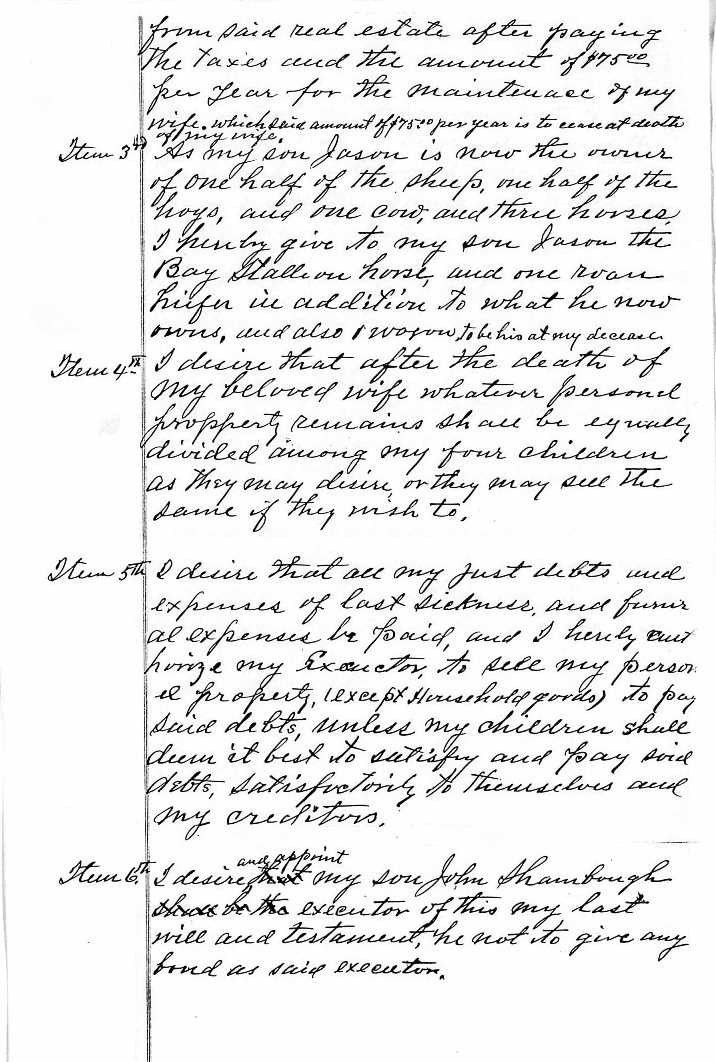 from said real estate after paying
the taxes and the amount of $75.00
per year for the maintenace of my
wife. which said amount of $75.00 per year is to cease at death
of my wife.
Item 3rd As my son Jason is now the owner
of one half of the sheep, one half of the
hogs, and one cow, and three horses,
I hereby give to my son Jason the
Bay Stallion horse, and one roan
hiefer in addition to what he now
owns, and also 1 wagon, to be his at my decease
Item 4th I desire that after the death of
my beloved wife whatever personel
propperty remains shall be equally
divided among my four children
as they may desire, or they may sell the
same if they wish to.
Item 5th I desire that all my just debts and
expenses of last sickness, and funer
al expenses be paid, and I hereby aut
horize my Executor, to sell my person
el property, (except Household goods) to pay
said debts, unless my children shall
deem it best to satisfy and pay said
debts, satisfactorily to themselves and
my creditors.
and appoint
Item 6th I desire that my son John Shambough
shall be the executor of this my last
will and testament, he not to give any
bond as said executor.